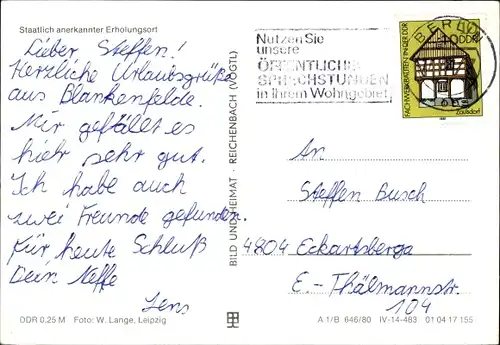 Staatlich anerkannter Erholungsort
Lieber Steffen!
Herzliche Urlaubsgrüße
aus Blankenfelde.
Mir gefällt es
hier sehr gut.
Ich habe auch
zwei Freunde gefunden.
Für heute Schluß
Dein Neffe
Jens
DDR 0,25 M Foto: W. Lange, Leipzig
BILD UND HEIMAT · REICHENBACH (VOGTL)
Nutzen Sie
unsere
ÖFFENTLICHEN
SPRECHSTUNDEN
in Ihrem Wohngebiet
BERLIN
FACHWERKBAUTEN IN DER DDR
DDR
Zaulsdorf
An
Steffen Busch
4804 Eckartsberga
E.-Thälmannstr.
104
A 1/B 646/80 IV-14-483 01 04 17 155